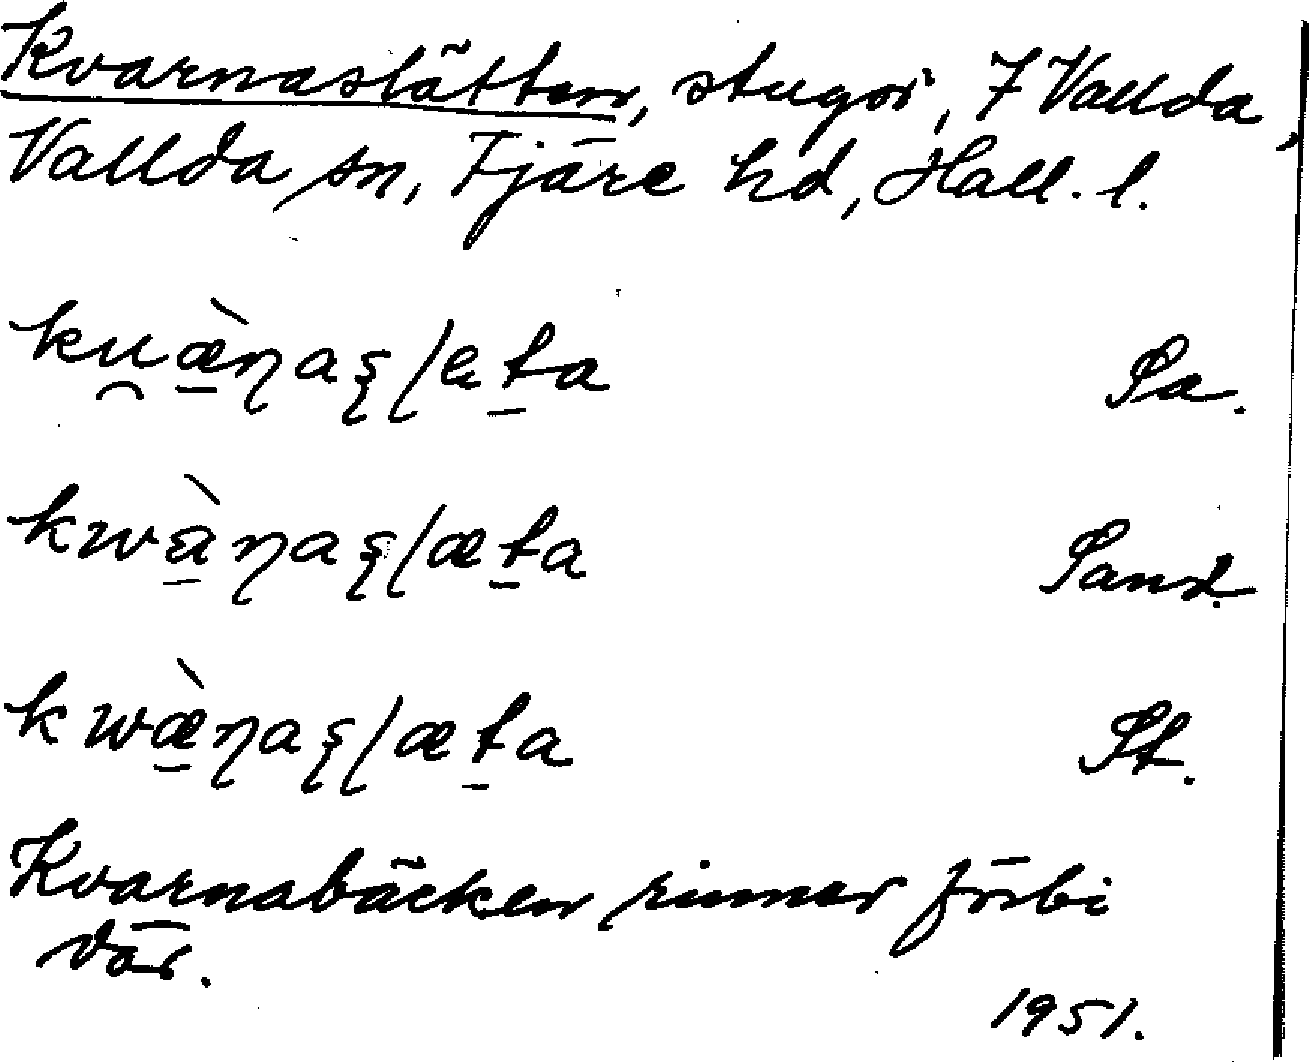 Kvarnaslätten, stugor, 7 Vallda,
Vallda sn, Fjäre hd, Hall. l.
ku̯æ̀ɳaʂɭeta Sa.
kwàɳaʂɭæta Sand.
kwæ̀ɳaʂɭæta St.
Kvarnabäcken rinner förbi
där.
1951.